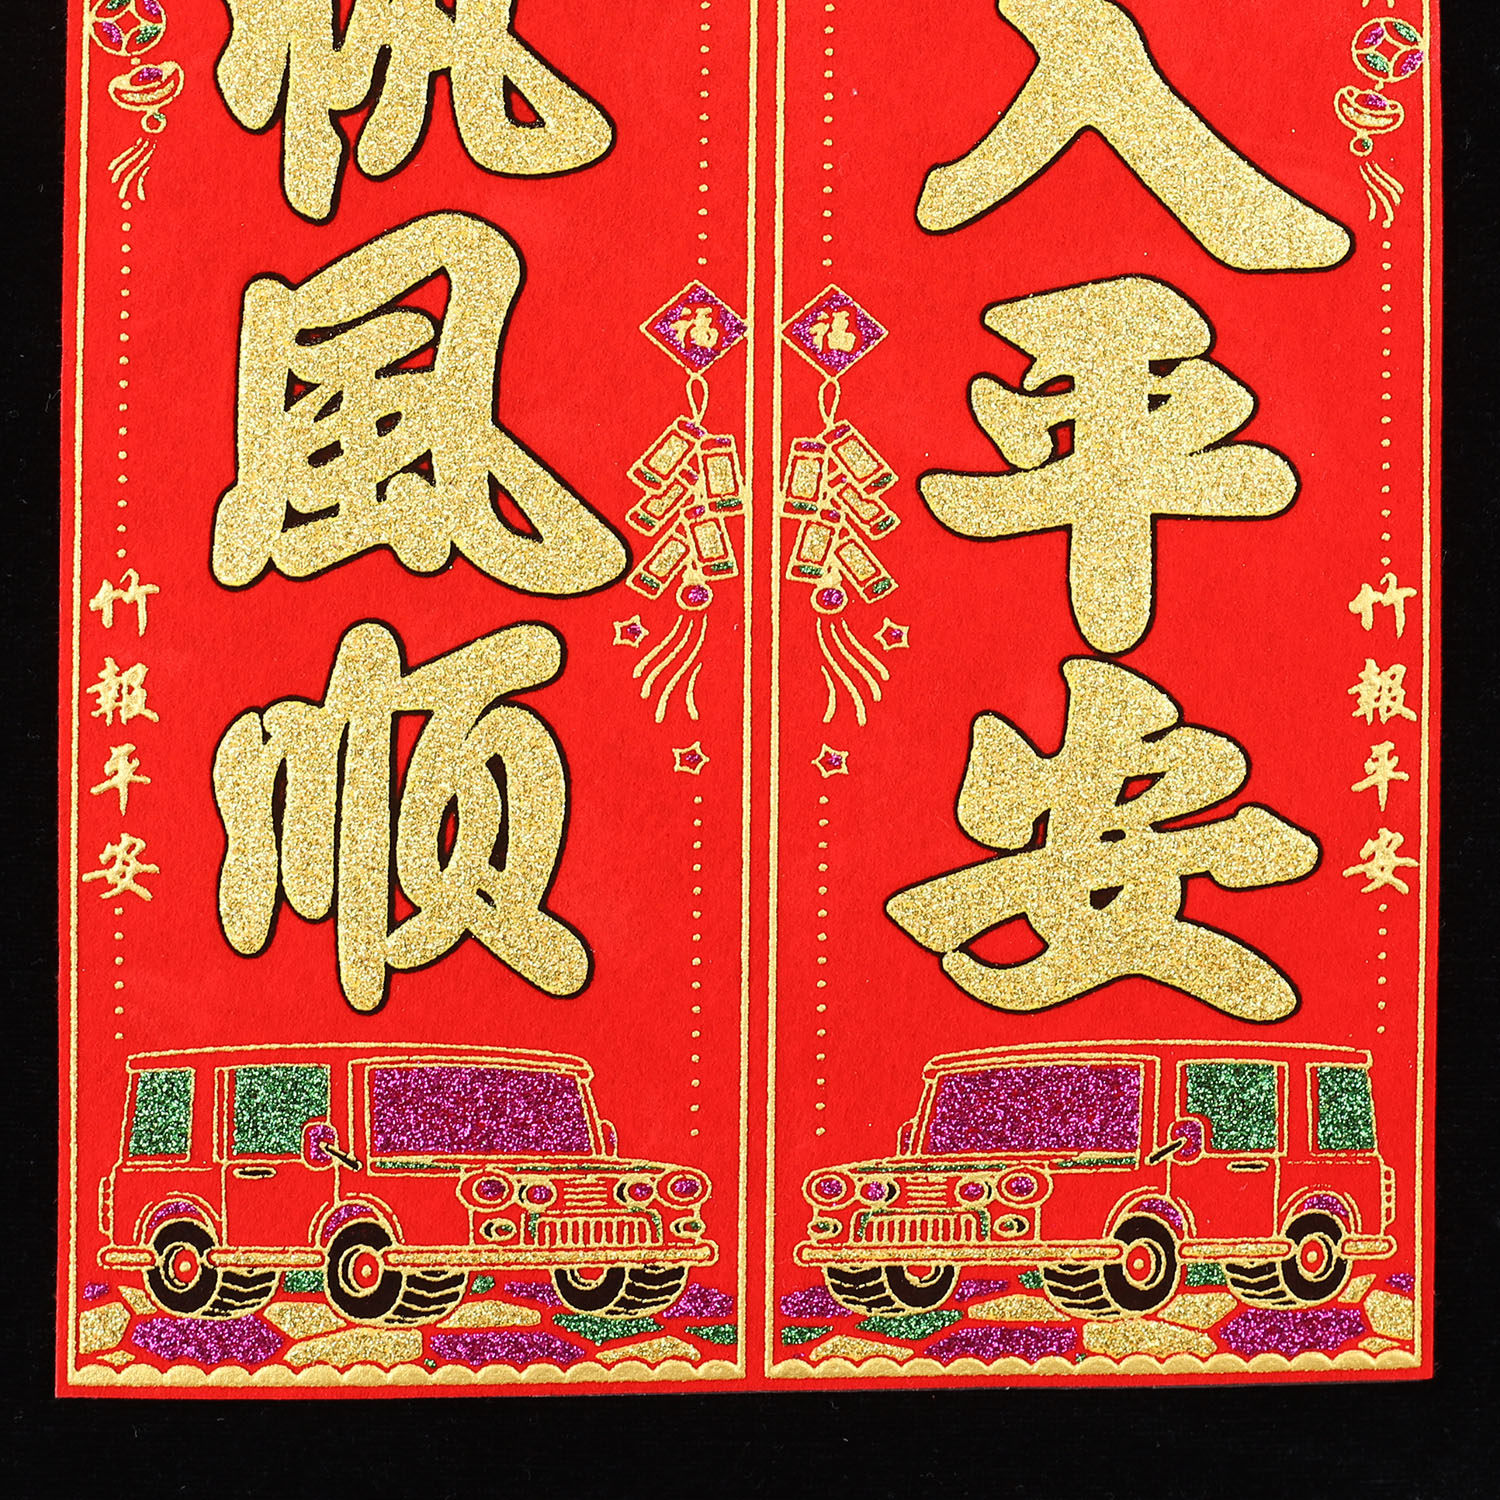 帆風顺
入平安
福
福
竹報平安
竹報平安